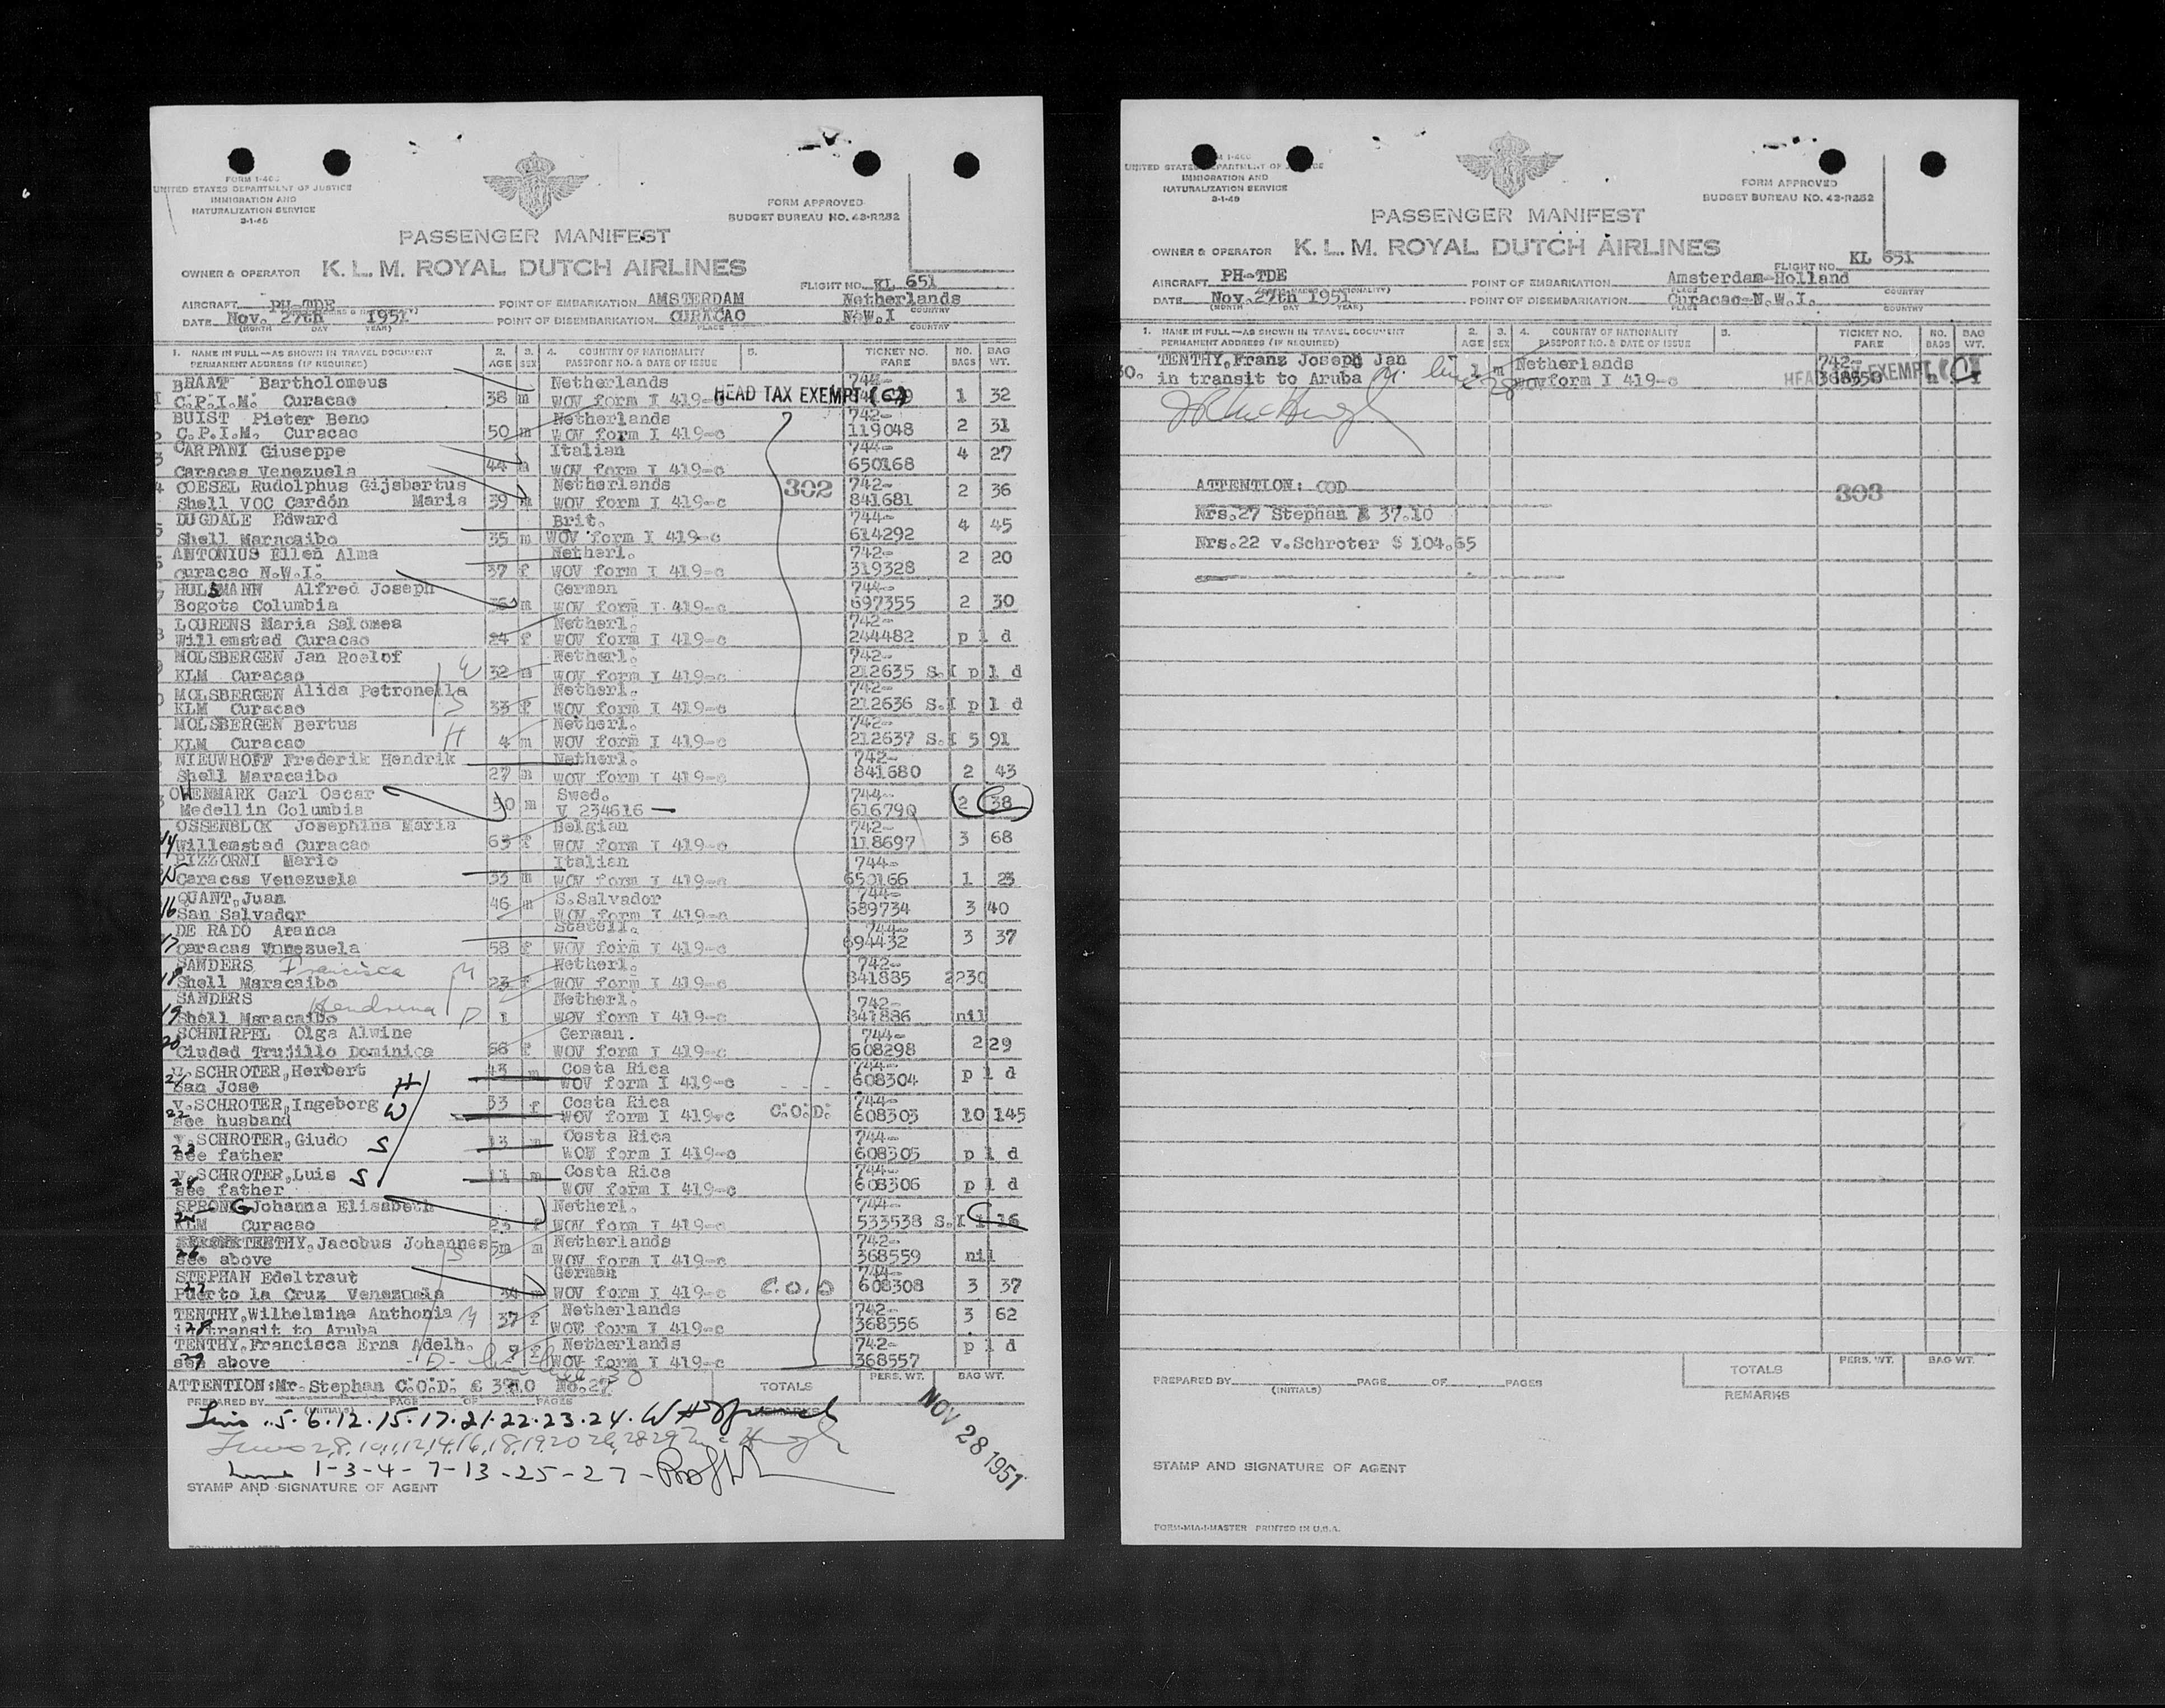 FORM I-466
UNITED STATES DEPARTMENT OF JUSTICE
IMMIGRATION AND
NATURALIZATION SERVICE
FORM APPROVED
BUDGET BUREAU NO. 43-R252
PASSENGER MANIFEST
OWNER & OPERATOR K. L. M. ROYAL DUTCH AIRLINES
FLIGHT NO. KL 651
AIRCRAFT PH-TDE POINT OF EMBARKATION AMSTERDAM Netherlands
DATE Nov. 27th 1951 POINT OF DISEMBARKATION CURACAO N.W.I
(MONTH DAY YEAR) PLACE COUNTRY
1. NAME IN FULL—AS SHOWN IN TRAVEL DOCUMENT 2. 3. 4. COUNTRY OF NATIONALITY 5. TICKET NO. NO. BAG
PERMANENT ADDRESS (IF REQUIRED) AGE SEX PASSPORT NO. & DATE OF ISSUE FARE BAGS WT.
BRAAT Bartholomeus Netherlands
C.P.I.M. Curacao 38 m WOV form I 419-c HEAD TAX EXEMPT 1 32
BUIST Pieter Beno Netherlands 742-
C.P.I.M. Curacao 50 m WOV form I 419-c 119048 2 31
3 CARPANI Giuseppe Italian 744-
Caracas Venezuela 44 m WOV form I 419-c 650168 4 27
4 COESEL Rudolphus Gijsbertus Netherlands 302 742-
Shell VOC Cardón Maria 39 m WOV form I 419-c 841681 2 36
DUGDALE Edward Brit. 744-
Shell Maracaibo 35 m WOV form I 419-c 614292 4 45
ANTONIUS Ellen Alma Netherl. 742-
curacao N.W.I. 37 f WOV form I 419-c 319328 2 20
HULSMANN Alfred Joseph German 744-
Bogota Columbia m WOV form I 419-c 697355 2 30
LOURENS Maria Salomea Netherl. 742-
Willemstad Curacao 24 f WOV form I 419-c 244482 p l d
MOLSBERGEN Jan Roelof Netherl. 742-
KLM Curacao 32 m WOV form I 419-c 212635 S.I p l d
MOLSBERGEN Alida Petronella Netherl. 742-
KLM Curacao 33 f WOV form I 419-c 212636 S.I p l d
MOLSBERGEN Bertus Netherl. 742-
KLM Curacao H 4 m WOV form I 419-c 212637 S.I 5 91
NIEUWHOFF Frederik Hendrik Netherl. 742-
Shell Maracaibo 27 m WOV form I 419-c 841680 2 43
OHENMARK Carl Oscar Swed. 744-
Medellin Columbia 50 m V 234616 616790 2 38
OSSENBLOK Josephina Maria Belgian 742-
14 Willemstad Curacao 63 f WOV form I 419-c 118697 3 68
PIZZORNI Mario Italian 744-
15 Caracas Venezuela 33 m WOV form I 419-c 650166 1 23
QUANT, Juan 46 m S.Salvador 744-
16 San Salvador WOV form I 419-c 689734 3 40
DE RADO Aranca Statell. 744-
17 caracas Venezuela 58 f WOV form I 419-c 694432 3 37
SANDERS Francisca M Netherl. 742-
18 Shell Maracaibo 23 f WOV form I 419-c 841885 2230
SANDERS Hendrina Netherl. 742-
19 Shell Maracaibo D 1 WOV form I 419-c 841886 nil
SCHNIRPEL Olga Alwine German. 744-
20 Ciudad Trujillo Dominica 66 f WOV form I 419-c 608298 2 29
v.SCHROTER, Herbert 43 m Costa Rica 744-
21 San Jose H WOV form I 419-c 608304 p l d
v.SCHROTER, Ingeborg W 33 f Costa Rica 744-
22 see husband WOV form I 419-c C.O.D. 608303 10 145
v.SCHROTER, Giudo S 13 m Costa Rica 744-
23 see father WOW form I 419-c 608305 p l d
v.SCHROTER, Luis S 11 m Costa Rica 744-
24 see father WOV form I 419-c 608306 p l d
SPRONG Johanna Elisabeth Netherl. 744-
25 KLM Curacao 23 f WOV form I 419-c 533538 S.I 1 16
TENTHY, Jacobus Johannes 5m m Netherlands 742-
26 see above S WOV form I 419-c 368559 nil
STEPHAN Edeltraut German 744-
27 Puerto la Cruz Venezuela WOV form I 419-c C.O.D 608308 3 37
TENTHY, Wilhelmina Anthonia M 37 f Netherlands 742-
28 in transit to Aruba WOV form I 419-c 368556 3 62
TENTHY, Francisca Erna Adelh. 9 f Netherlands 742- p l d
29 see above D WOV form I 419-c 368557
ATTENTION: Mr. Stephan C.O.D. £ 37.10 No.27 TOTALS PERS. WT. BAG WT.
PREPARED BY (INITIALS) PAGE OF PAGES REMARKS
Line 5.6.12.15.17.21.22.23.24.
Lines 2,8,10,11,12,14,16,18,19,20 26,28 29
Lines 1-3-4-7-13-25-27-
NOV 28 1951
STAMP AND SIGNATURE OF AGENT
UNITED STATES DEPARTMENT OF JUSTICE
IMMIGRATION AND
NATURALIZATION SERVICE
FORM APPROVED
BUDGET BUREAU NO. 43-R252
PASSENGER MANIFEST
OWNER & OPERATOR K. L. M. ROYAL DUTCH AIRLINES
FLIGHT NO. KL 651
AIRCRAFT PH-TDE POINT OF EMBARKATION Amsterdam-Holland
DATE Nov. 27th 1951 POINT OF DISEMBARKATION Curacao-N.W.I.
(MONTH DAY YEAR) PLACE COUNTRY
1. NAME IN FULL—AS SHOWN IN TRAVEL DOCUMENT 2. 3. 4. COUNTRY OF NATIONALITY 5. TICKET NO. NO. BAG
PERMANENT ADDRESS (IF REQUIRED) AGE SEX PASSPORT NO. & DATE OF ISSUE FARE BAGS WT.
TENTHY, Franz Joseph Jan 1 m Netherlands 742-
30. in transit to Aruba line 28 WOV form I 419-c HEAD TAX EXEMPT 368558
ATTENTION: COD 303
Nrs.27 Stephan £ 37.10
Nrs.22 v.Schroter $ 104.65
PREPARED BY (INITIALS) PAGE OF PAGES TOTALS PERS. WT. BAG WT.
REMARKS
STAMP AND SIGNATURE OF AGENT
FORM-MIA-I-MASTER PRINTED IN U.S.A.